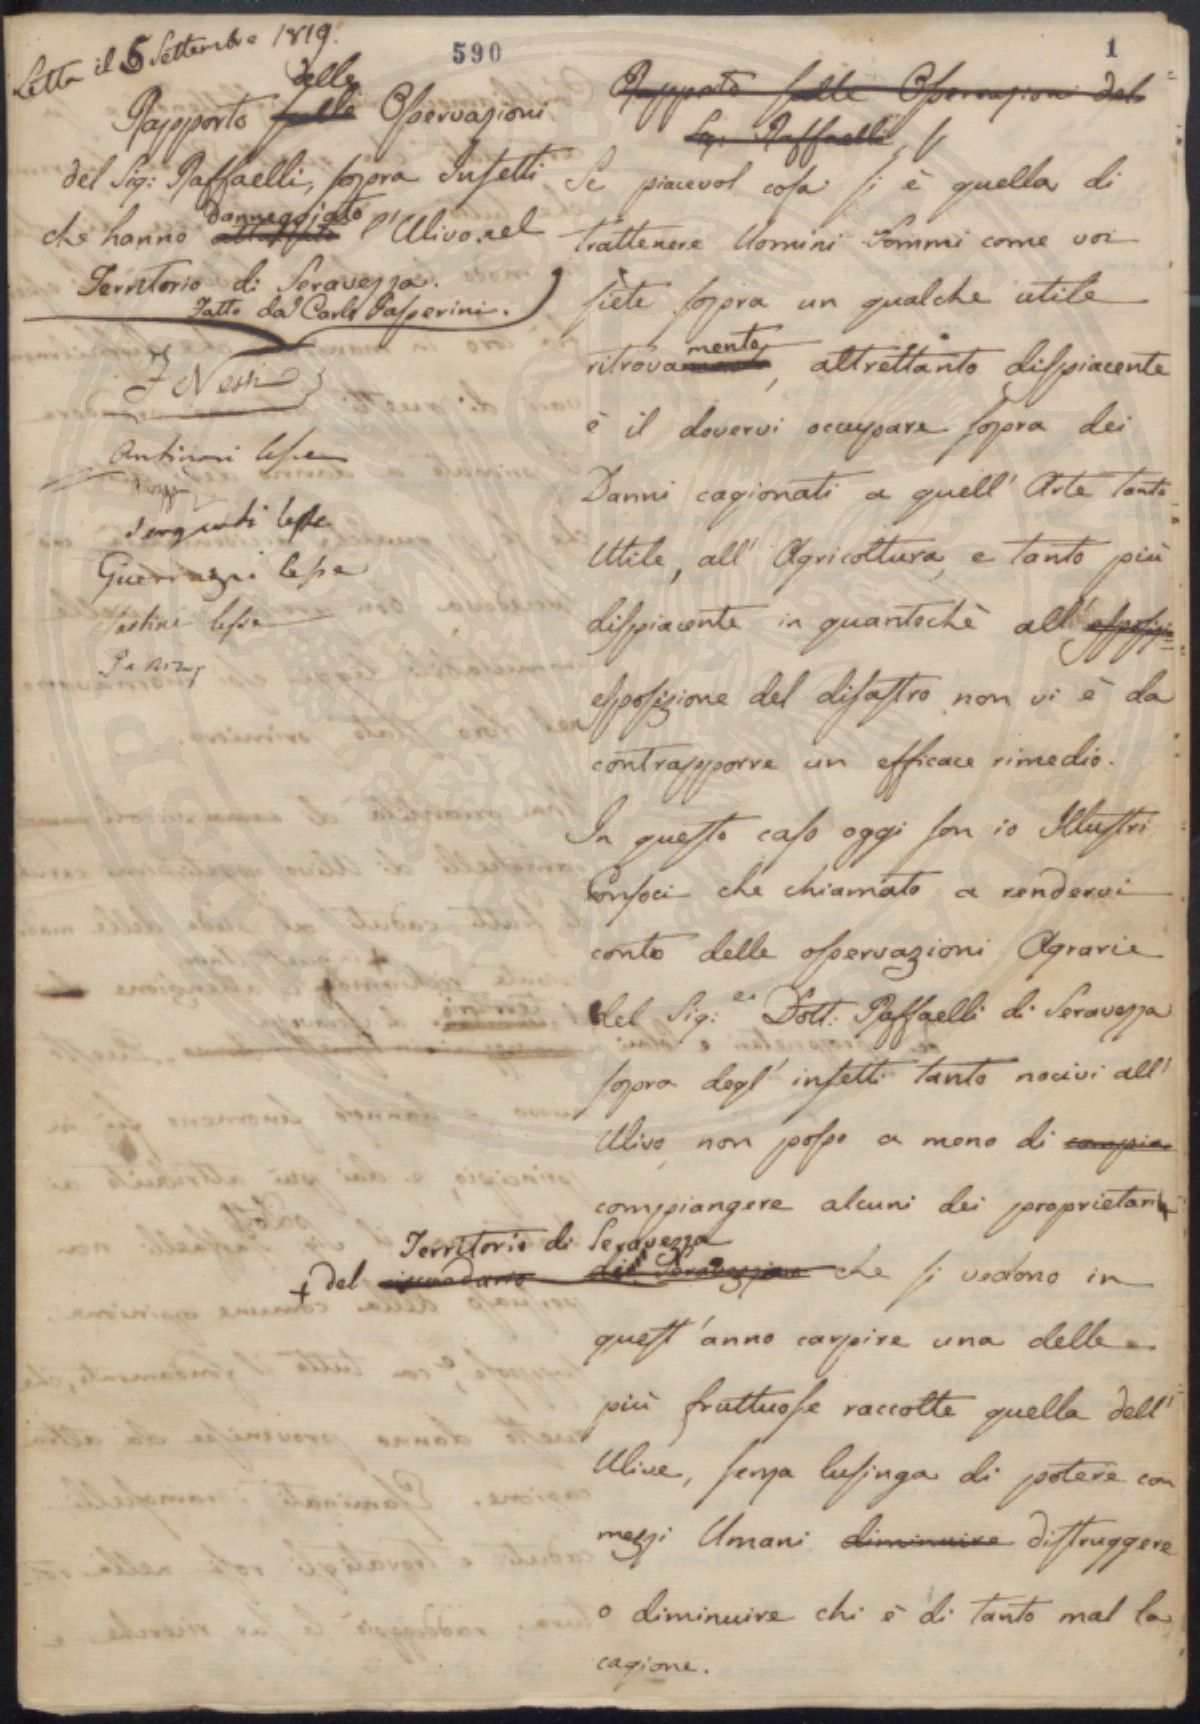 Letta il 5 Settembre 1819.
590
1
delle
Rapporto sulle Osservazioni
del Sig: Raffaelli, sopra Insetti
danneggiato
che hanno attaccato l'Ulivo nel
Territorio di Seravezza.
Fatto da Carlo Passerini.
F Nessi
Antinori lesse
lesse
Guerrazzi lesse
lesse
Rapporto sulle Osservazioni del
Sig: Raffaelli
Se piacevol cosa si è quella di
trattenere Uomini Sommi come voi
siete sopra un qualche utile
mento
ritrovamento, altrettanto dispiacente
è il dovervi occupare sopra dei
Danni cagionati a quell'Arte tanto
Utile, all'Agricoltura, e tanto più
dispiacente in quantochè all'esposizi=
esposizione del disastro non vi è da
contrapporre un efficace rimedio.
In questo caso oggi son io Illustri
Consoci che chiamato a rendervi
conto delle osservazioni Agrarie
del Sig: re Dott: Raffaelli di Seravezza
sopra degl'insetti tanto nocivi all'
Ulivo, non posso a meno di compia
compiangere alcuni dei proprietari +
Territorio di Seravezza
+ del circondario di Seravezza che si vedono in
quest'anno carpire una delle
più fruttuose raccolte quella dell'
Ulive, senza lusinga di potere con
mezzi Umani diminuire distruggere
o diminuire chi è di tanto mal la
cagione.